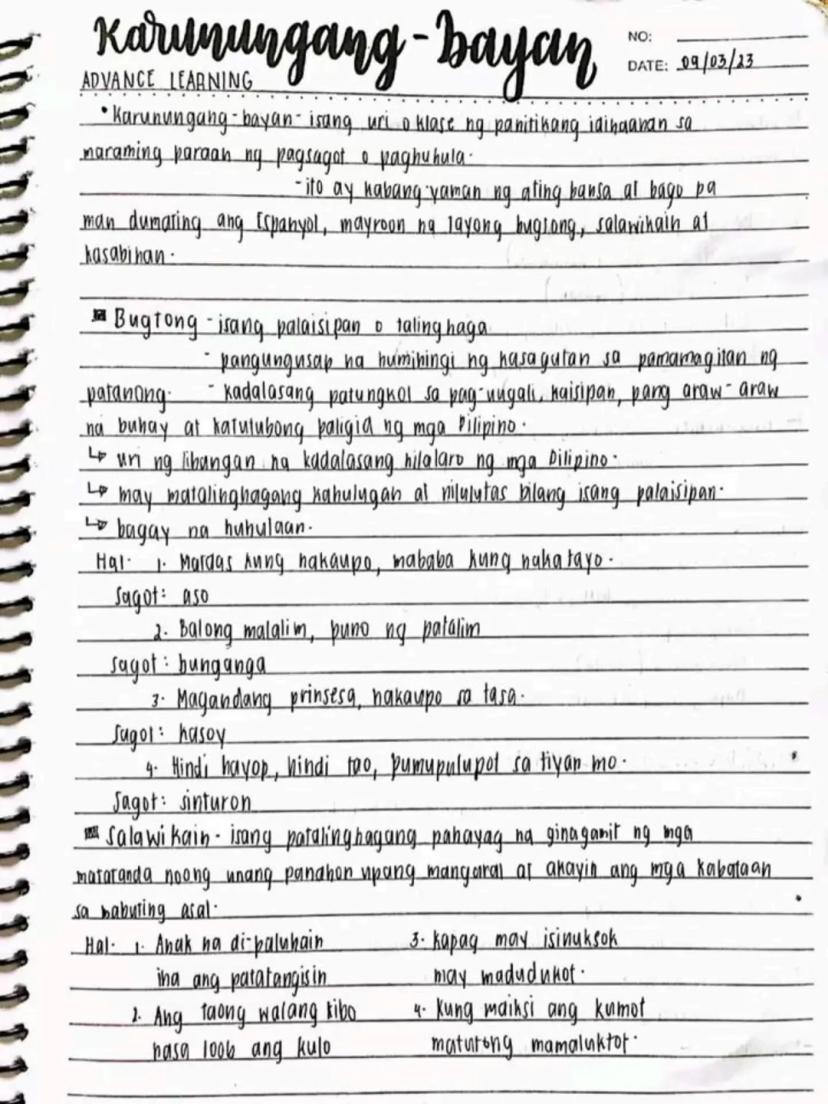 Karunungang-bayan
NO:
DATE: 09/03/23
ADVANCE LEARNING
• Karunungang-bayan- isang uri o klase ng panitikang idinaanan sa
maraming paraan ng pagsagot o paghuhula.
-ito ay kabang-yaman ng ating bansa at bago pa
man dumating ang Espanyol, mayroon na tayong bugtong, salawikain at
kasabihan.
Bugtong -isang palaisipan o talinghaga
- pangungusap na humihingi ng kasagutan sa pamamagitan ng
patanong. - kadalasang patungkol sa pag-uugali, kaisipan, pang araw-araw
na buhay at katutubong paligid ng mga Pilipino.
↳ uri ng libangan na kadalasang nilalaro ng mga Pilipino.
↳ may matalinghagang kahulugan at nilulutas bilang isang palaisipan.
↳ bagay na huhulaan.
Hal. 1. Mataas kung nakaupo, mababa kung nakatayo.
Sagot: aso
2. Balong malalim, puno ng patalim
sagot: bunganga
3. Magandang prinsesa, nakaupo sa tasa.
Sagot: kasoy
4. Hindi hayop, hindi tao, pumupulupot sa tiyan mo.
Sagot: sinturon
Salawikain- isang patalinghagang pahayag na ginagamit ng mga
matatanda noong unang panahon upang mangaral at akayin ang mga kabataan
sa mabuting asal.
Hal. 1. Anak na di-paluhain
ina ang patatangisin
2. Ang taong walang kibo
nasa loob ang kulo
3. kapag may isinuksok
may madudukot.
4. Kung maiksi ang kumot
matutong mamaluktot.